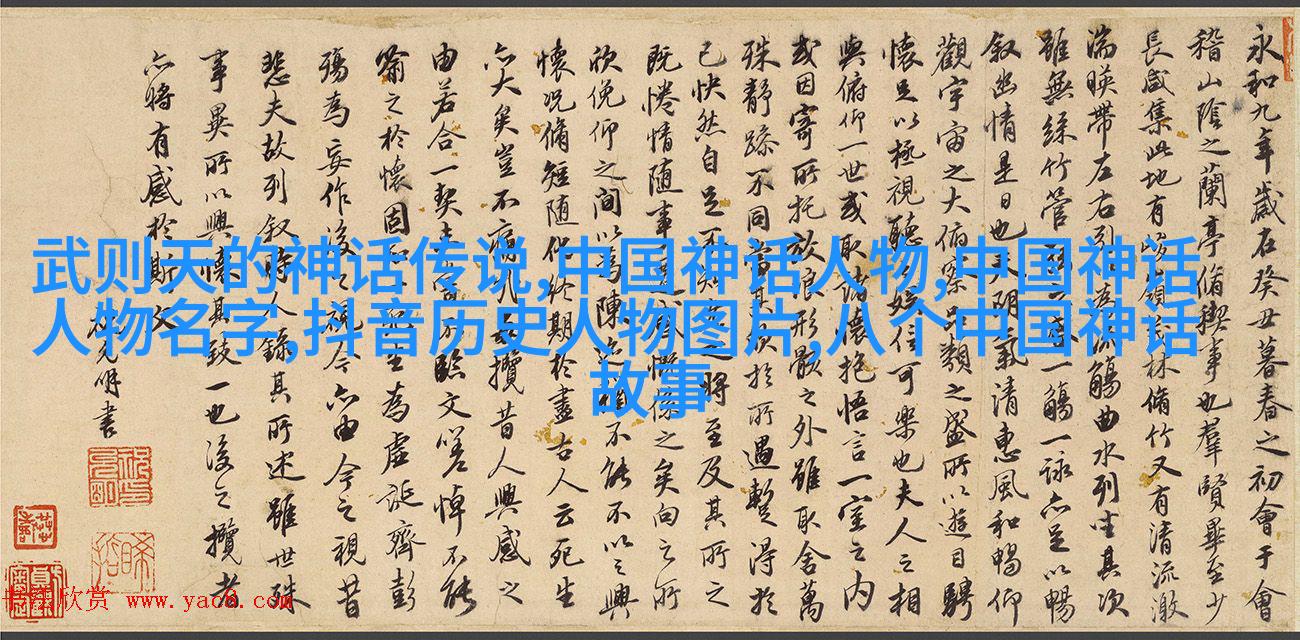 武则天的神话传说,中国神话人物,中国神话
人物名字,抖音历史人物图片,八个中国神话
故事
永和九年歲在癸丑暮春之初會于會
稽山陰之蘭亭脩禊事也羣賢畢至少
長咸集此地有峻領茂林脩竹又有清流激
湍暎帶左右引流觴曲水列坐其次
雖無絲竹管一觴一詠亦足以暢
叙幽情是日也天朗氣清惠風和暢仰
觀宇宙之大俯察品類之盛所以遊目騁
懷足以極視聽娛信可樂也夫人之相
與俯仰一世或取諸懷抱悟言一室之內
或因寄所托放浪形骸之外雖取舍萬
殊靜躁不同當其欣於所遇暫得於
已快然自足不之將至及其所之
既惓情隨事慨係之矣向之所
欣俛仰之間以為陳迹猶不能不以之興
懷況脩短隨化終期於盡古人云死生
亦大矣豈不痛攬昔人興感之
由若合一契不臨文嗟悼不能
喻之於懷固知生為虛誕齊彭
殤為妄作後之視今亦由今之視昔
悲夫故列叙時人錄其所述雖世殊
事異所以興懷其致一也後之攬者
亦將有感於斯文
允明書
欣赏 www.yac8.com